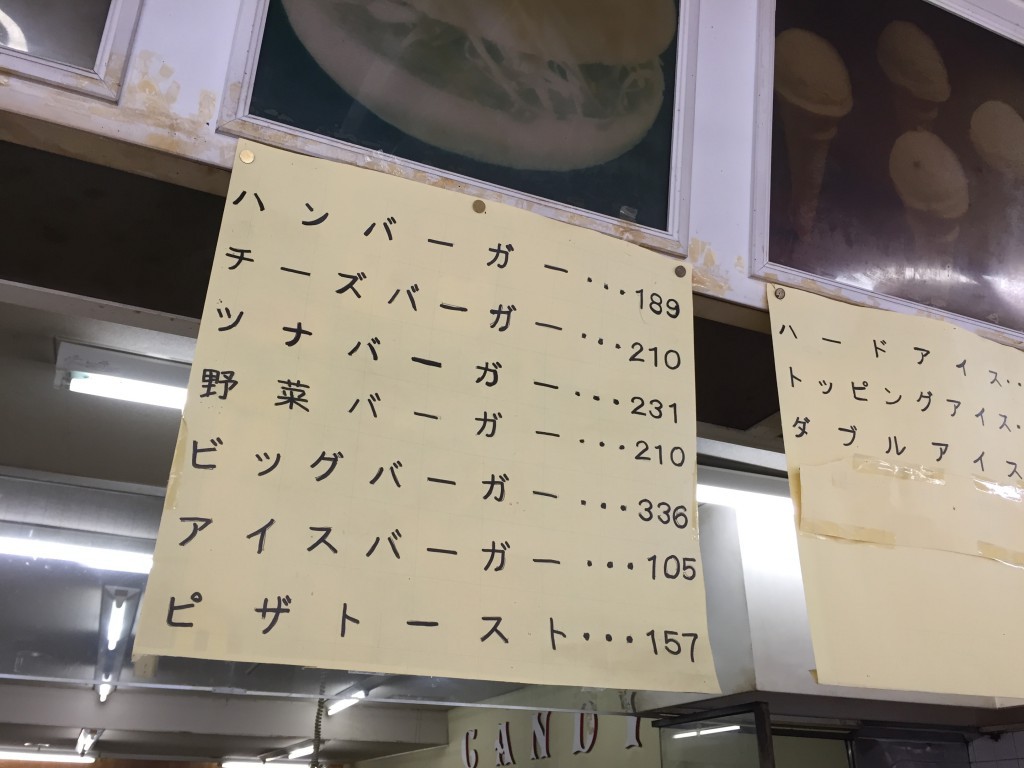 ハンバーガー...189
チーズバーガー...210
ツナバーガー...231
野菜バーガー...210
ビッグバーガー...336
アイスバーガー...105
ピザトースト...157
ハードアイス..
トッピングアイス.
ダブルアイス
CANDY